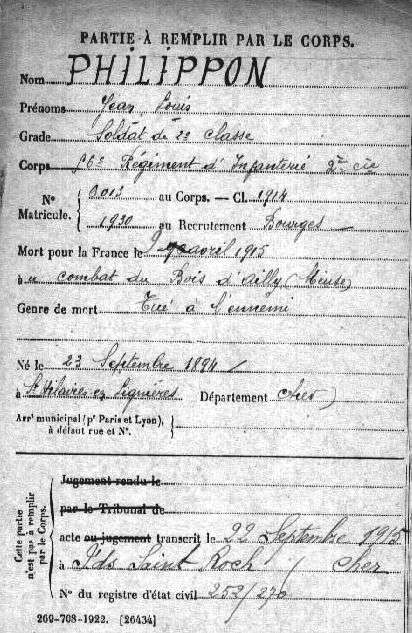 PARTIE À REMPLIR PAR LE CORPS.
Nom PHILIPPON
Prénoms Jean Louis
Grade Soldat de 2e classe
Corps 56e Régiment d'Infanterie 2me cie
N° Matricule. { 3013 au Corps. — Cl. 1914
1930 au Recrutement Bourges
Mort pour la France le 9 avril 1915
à u combat du Bois d'ailly (Meuse)
Genre de mort Tué à l'ennemi
Né le 23 Septembre 1894
à St Hilaire en Lignières Département Cher
Arrt municipal (pr Paris et Lyon), à défaut rue et N°. }
Cette partie n'est pas à remplir par le Corps. {
Jugement rendu le
par le Tribunal de
acte ou jugement transcrit le 22 Septembre 1915
à Ids Saint Roch / Cher
N° du registre d'état civil 252/270
269-708-1922. [26434]